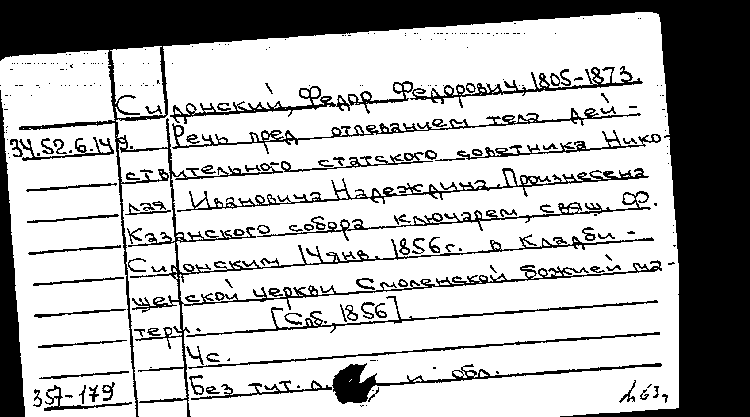 Сидонский, Федор Федорович, 1805-1873.
34.52.6.149. Речь пред отпеванием тела дей-
ствительного статского советника Нико-
лая Ивановича Надеждина. Произнесена
Казанского собора ключарем, свящ. Ф.
Сидонским 14 янв. 1856 г. в Кладби-
щенской церкви Смоленской божией ма-
тери. [Спб., 1856].
4 с.
357-179 Без тит. л. и обл.